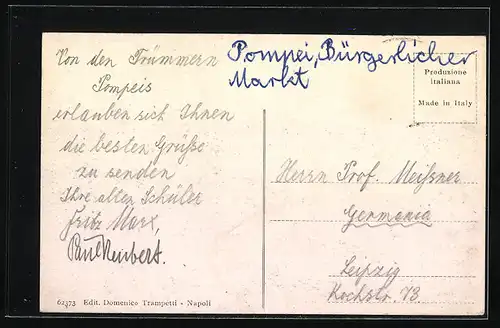 Pompei, Bürgerlicher
Markt
Von den Trümmern
Pompeis
erlauben sich Ihnen
die besten Grüße
zu senden
Ihre alten Schüler
Fritz Marx,
Paul Neubert.
Produzione
italiana
Made in Italy
Herrn Prof. Meißner
Germania
Leipzig
Kochstr. 73
62373 Edit. Domenico Trampetti - Napoli